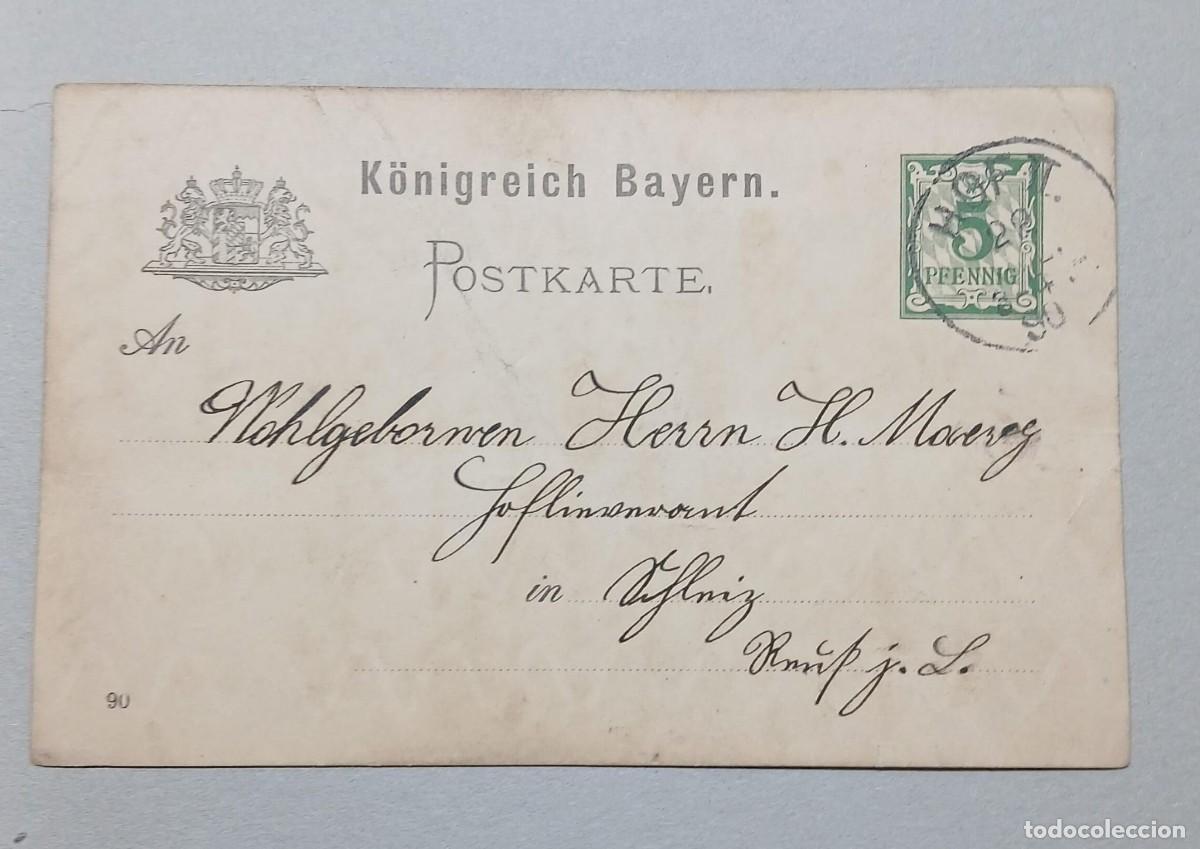 Königreich Bayern.
POSTKARTE.
5
PFENNIG
HOF II.
90
An
Wohlgebornen Herrn H.
Hoflieverant
in Schleiz
Reuß j. L.
90
todocoleccion